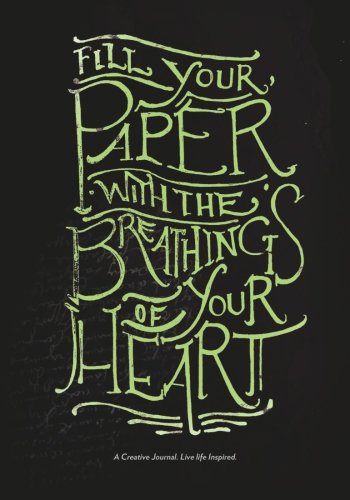 FILL YOUR
PAPER
WITH THE
BREATHINGS
OF YOUR
HEART
A Creative Journal. Live life Inspired.